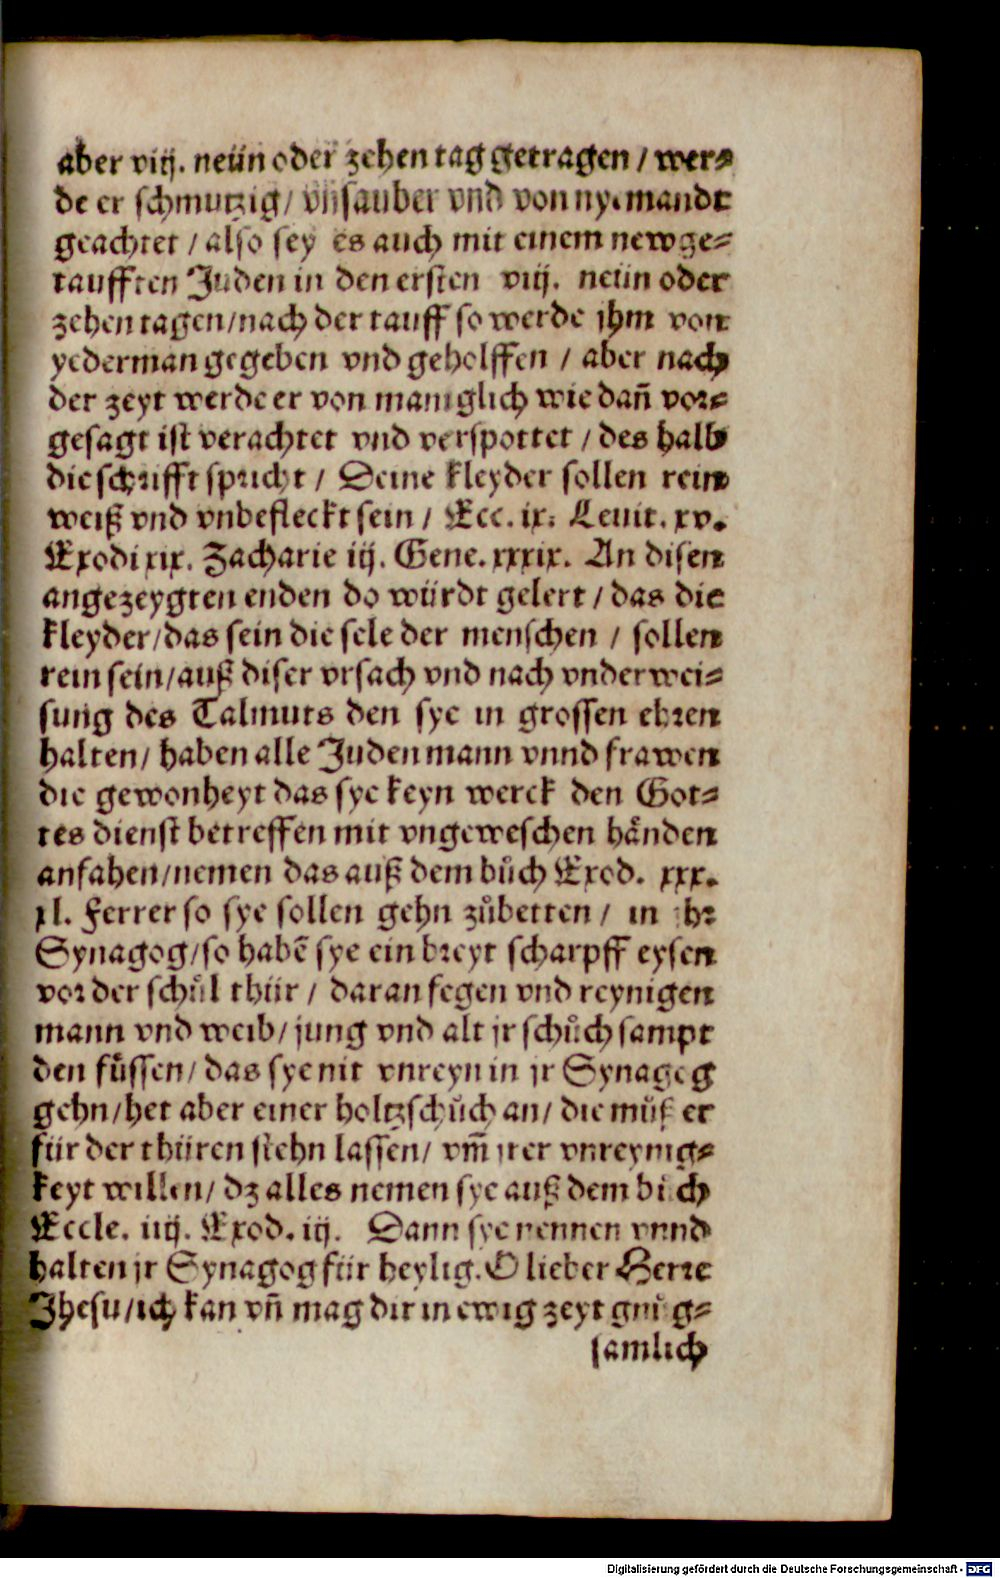 aber viij. neün oder zehen tag getragen / wer⸗
de er schmutzig / vnsauber vnd von nyemandt
geachtet / also sey es auch mit einem newge⸗
taufften Juden in den ersten viij. neün oder
zehen tagen / nach der tauff so werde jhm von
yederman gegeben vnd geholffen / aber nach
der zeyt werde er von maniglich wie dañ vor⸗
gesagt ist verachtet vnd verspottet / des halb
die schrifft spricht / Deine kleyder sollen rein
weiß vnd vnbefleckt sein / Ecc. ix. Leuit. xv.
Exodi xix. Zacharie iij. Gene. xxxix. An disen
angezeygten enden do würdt gelert / das die
kleyder / das sein die sele der menschen / sollen
rein sein / auß diser vrsach vnd nach vnderwei⸗
sung des Talmuts den sye in grossen ehren
halten / haben alle Juden mann vnnd frawen
die gewonheyt das sye keyn werck den Got⸗
tes dienst betreffen mit vngeweschen hånden
anfahen / nemen das auß dem bůch Exod. xxx.
xl. Ferrer so sye sollen gehn zůbetten / in jhr
Synagog / so habẽ sye ein breyt scharpff eysen
vor der schůl thür / daran fegen vnd reynigen
mann vnd weib / jung vnd alt jr schůch sampt
den fůssen / das sye nit vnreyn in jr Synagog
gehn / het aber einer holtzschůch an / die můß er
für der thüren stehn lassen / vm̃ jrer vnreynig⸗
keyt willen / dz alles nemen sye auß dem bůch
Eccle. iiij. Exod. iij. Dann sye nennen vnnd
halten jr Synagog für heylig. O lieber Herre
Jhesu / ich kan vñ mag dir in ewig zeyt gnůg⸗
samlich
Digitalisierung gefördert durch die Deutsche Forschungsgemeinschaft - DFG